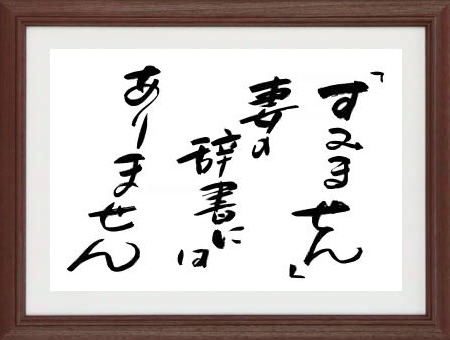 「すみません」
妻の
辞書には
ありません